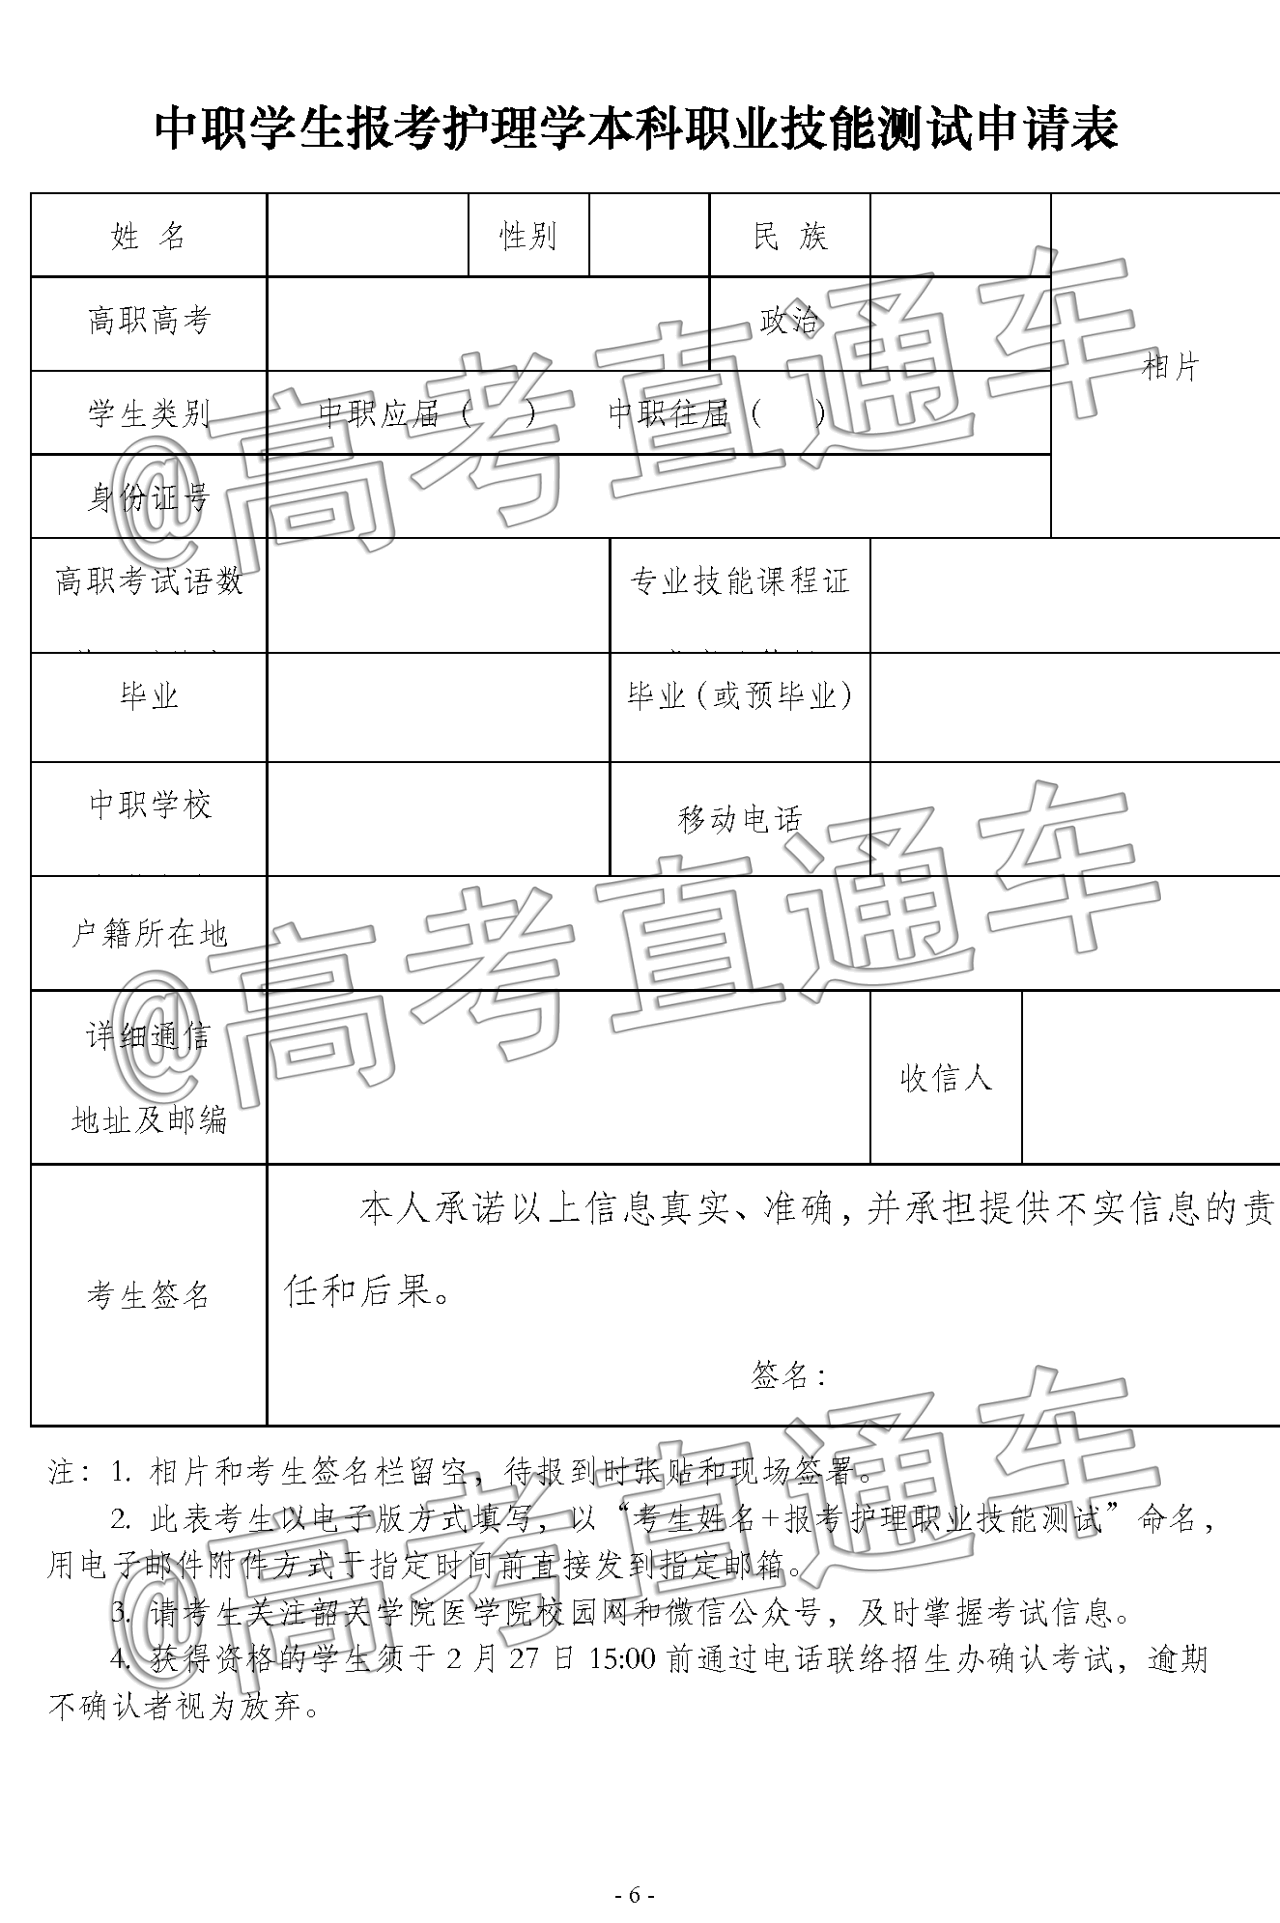 中职学生报考护理学本科职业技能测试申请表
姓 名 性别 民 族
高职高考 政治
相片
学生类别 中职应届（ ） 中职往届（ ）
身份证号
高职考试语数 专业技能课程证
毕业 毕业（或预毕业）
中职学校 移动电话
户籍所在地
详细通信
地址及邮编
收信人
本人承诺以上信息真实、准确，并承担提供不实信息的责
任和后果。
考生签名
签名：
注：1. 相片和考生签名栏留空，待报到时张贴和现场签署。
2. 此表考生以电子版方式填写，以“考生姓名+报考护理职业技能测试”命名，
用电子邮件附件方式于指定时间前直接发到指定邮箱。
3. 请考生关注韶关学院医学院校园网和微信公众号，及时掌握考试信息。
4. 获得资格的学生须于 2 月 27 日 15:00 前通过电话联络招生办确认考试，逾期
不确认者视为放弃。
- 6 -
@高考直通车
@高考直通车
@高考直通车